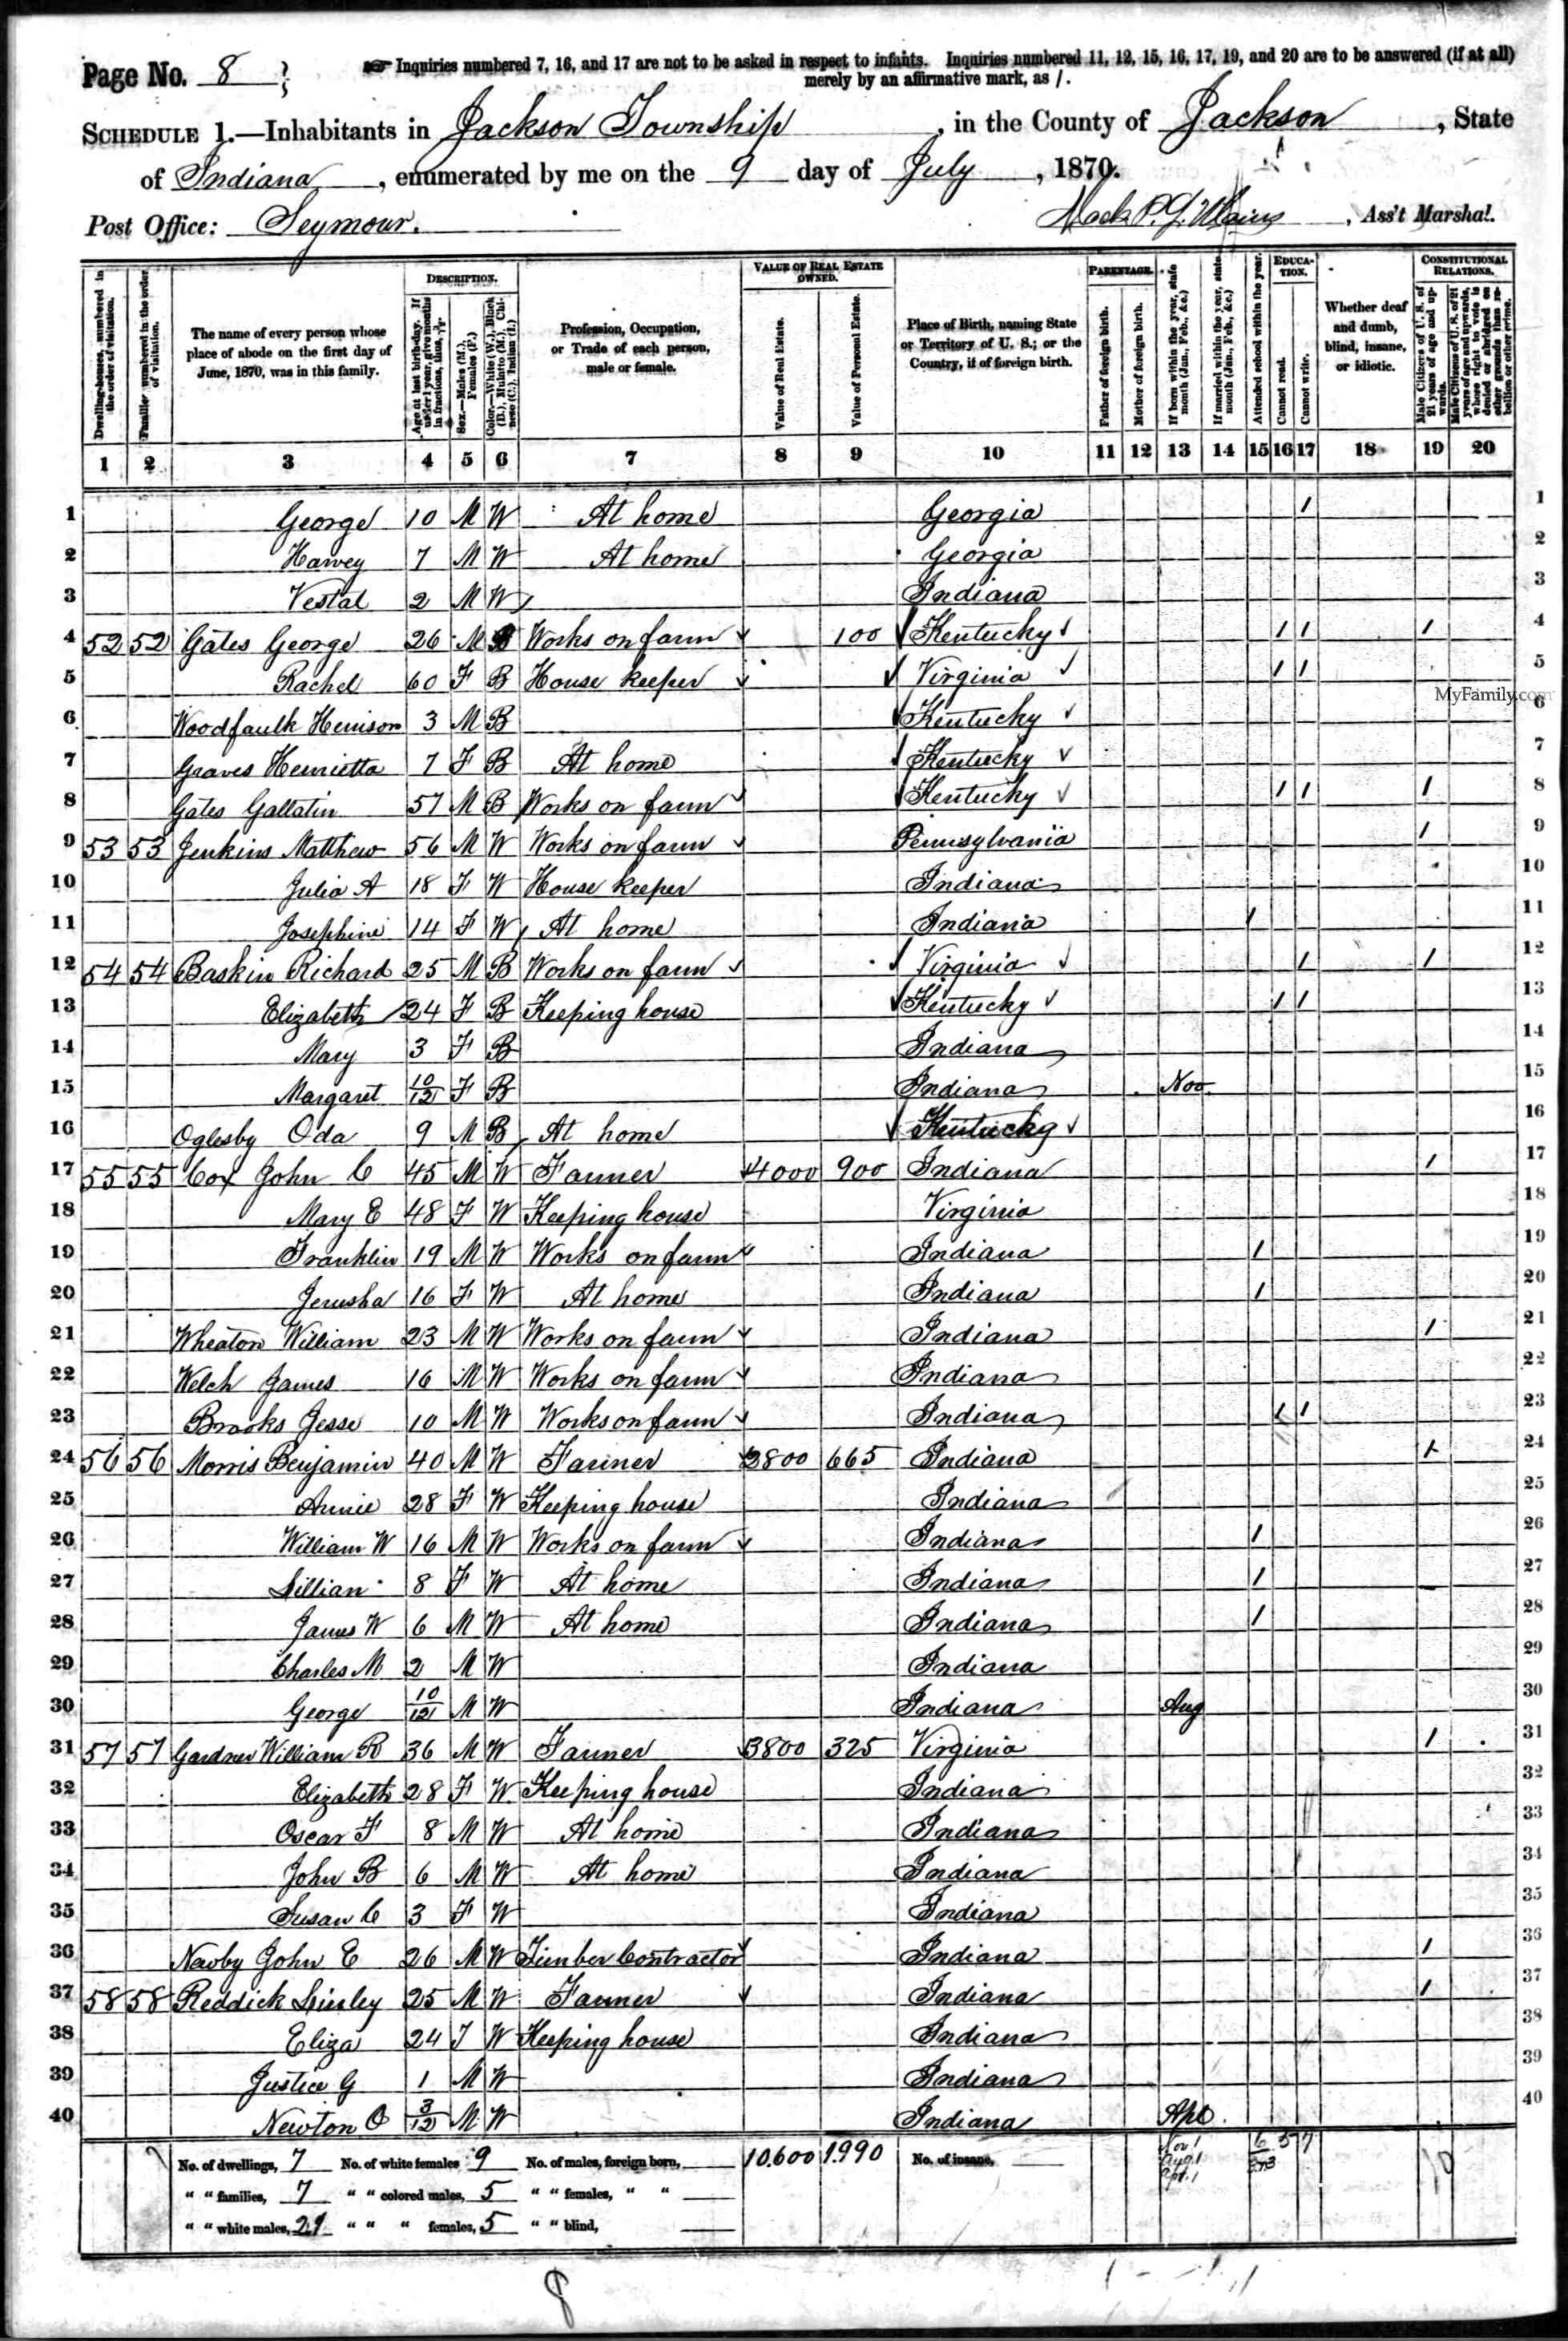 Page No. 8
Inquiries numbered 7, 16, and 17 are not to be asked in respect to infants. Inquiries numbered 11, 12, 15, 16, 17, 19, and 20 are to be answered (if at all)
merely by an affirmative mark, as /.
SCHEDULE 1.—Inhabitants in Jackson Township, in the County of Jackson, State
of Indiana, enumerated by me on the 9 day of July, 1870.
Post Office: Seymour. , Ass't Marshal.
Dwelling-houses, numbered in the order of visitation.
Families, numbered in the order of visitation.
The name of every person whose place of abode on the first day of June, 1870, was in this family.
DESCRIPTION.
Age at last birth-day. If under 1 year, give months in fractions, thus, 3/12.
Sex.—Males (M.), Females (F.)
Color.—White (W.), Black (B.), Mulatto (M.), Chinese (C.), Indian (I.)
Profession, Occupation, or Trade of each person, male or female.
VALUE OF REAL ESTATE OWNED.
Value of Real Estate.
Value of Personal Estate.
Place of Birth, naming State or Territory of U. S.; or the Country, if of foreign birth.
PARENTAGE.
Father of foreign birth.
Mother of foreign birth.
If born within the year, state month (Jan., Feb., &c.)
If married within the year, state month (Jan., Feb., &c.)
Attended school within the year.
EDUCATION.
Cannot read.
Cannot write.
Whether deaf and dumb, blind, insane, or idiotic.
CONSTITUTIONAL RELATIONS.
Male Citizens of U. S. of 21 years of age and upwards.
Male Citizens of U. S. of 21 years of age and upwards, whose right to vote is denied or abridged on other grounds than rebellion or other crime.
1 2 3 4 5 6 7 8 9 10 11 12 13 14 15 16 17 18 19 20
1 George 10 M W At home Georgia / 1
2 Harvey 7 M W At home Georgia 2
3 Vestal 2 M W Indiana 3
4 52 52 Gates George 26 M B Works on farm 100 Kentucky / / / 4
5 Rachel 60 F B House keeper Virginia / / 5
MyFamily.com
6 Woodfaulk Henison 3 M B Kentucky 6
7 Graves Henrietta 7 F B At home Kentucky 7
8 Gates Gallatin 57 M B Works on farm Kentucky / / / 8
9 53 53 Jenkins Matthew 56 M W Works on farm Pennsylvania / 9
10 Julia A 18 F W House keeper Indiana 10
11 Josephine 14 F W At home Indiana / 11
12 54 54 Baskin Richard 25 M B Works on farm Virginia / / 12
13 Elizabeth 24 F B Keeping house Kentucky / / 13
14 Mary 3 F B Indiana 14
15 Margaret 10/12 F B Indiana Nov 15
16 Oglesby Oda 9 M B At home Kentucky 16
17 55 55 Cox John C 45 M W Farmer 4000 900 Indiana / 17
18 Mary E 48 F W Keeping house Virginia 18
19 Franklin 19 M W Works on farm Indiana / 19
20 Jerusha 16 F W At home Indiana / 20
21 Wheaton William 23 M W Works on farm Indiana / 21
22 Welch James 16 M W Works on farm Indiana 22
23 Brooks Jesse 10 M W Works on farm Indiana / / 23
24 56 56 Morris Benjamin 40 M W Farmer 2800 665 Indiana / 24
25 Annie 28 F W Keeping house Indiana 25
26 William W 16 M W Works on farm Indiana / 26
27 Lillian 8 F W At home Indiana / 27
28 James W 6 M W At home Indiana / 28
29 Charles M 2 M W Indiana 29
30 George 10/12 M W Indiana Aug 30
31 57 57 Gardner William R 36 M W Farmer 3800 325 Virginia / 31
32 Elizabeth 28 F W Keeping house Indiana 32
33 Oscar F 8 M W At home Indiana 33
34 John B 6 M W At home Indiana 34
35 Susan C 3 F W Indiana 35
36 Newby John E 26 M W Timber Contractor Indiana / 36
37 58 58 Reddick 25 M W Farmer Indiana / 37
38 Eliza 24 F W Keeping house Indiana 38
39 Justice G 1 M W Indiana 39
40 Newton O 3/12 M W Indiana Apl 40
No. of dwellings, 7 No. of white females 9 No. of males, foreign born, 10,600 1,990 No. of insane, Nov 1 Aug 1 Apl 1 6 5 7 10
" " families, 7 " " colored males, 5 " " females, " "
" " white males, 21 " " " females, 5 " " blind,
8